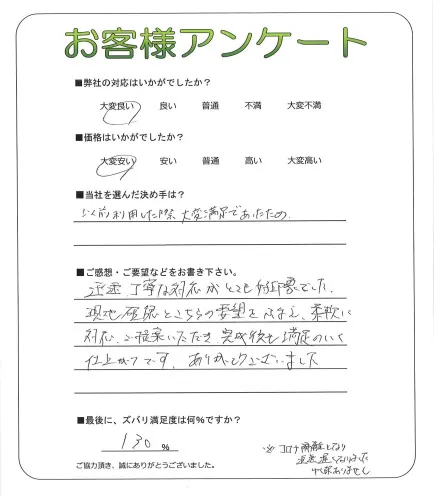 お客様アンケート
■弊社の対応はいかがでしたか？
大変良い 良い 普通 不満 大変不満
■価格はいかがでしたか？
大変安い 安い 普通 高い 大変高い
■当社を選んだ決め手は？
以前利用した際、大変満足であったため
■ご感想・ご要望などをお書き下さい。
迅速、丁寧な対応がとても好印象でした。
現地確認とこちらの要望をふまえ、柔軟に
対応、ご提案いただき 完成後も満足のいく
仕上がりです。ありがとうございました
■最後に、ズバリ満足度は何％ですか？
130 %
※コロナ
遅くなりました
ご協力頂き、誠にありがとうございました。